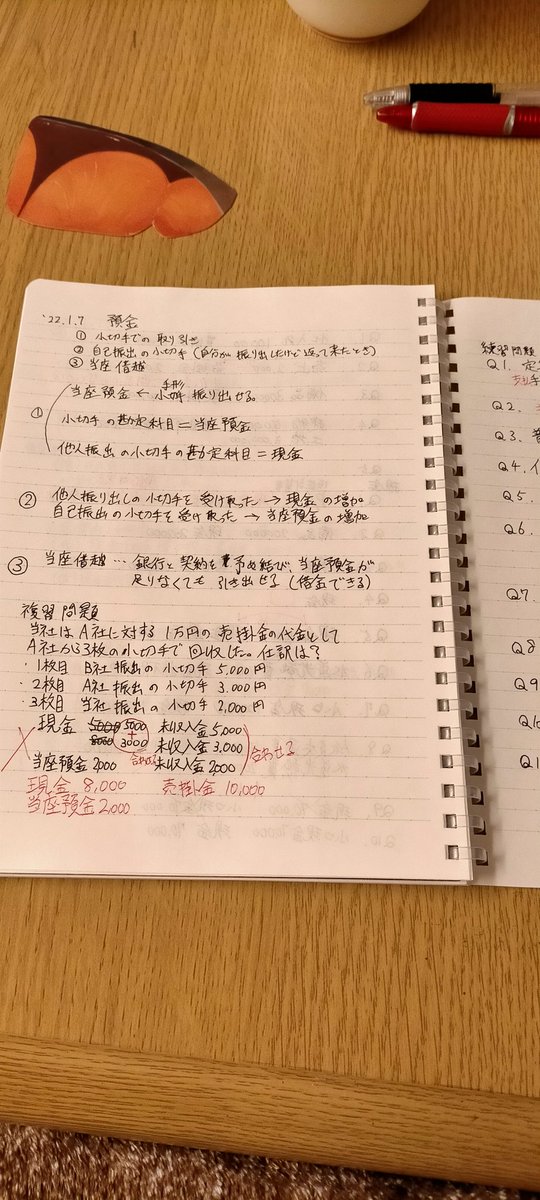 '22.1.7 預金
① 小切手での取り引き
② 自己振出の小切手(自分が振り出したけど返って来たとき)
③ 当座借越
当座預金 ← 小切手 手形 振り出せる。
①
小切手の勘定科目=当座預金
他人振出の小切手の勘定科目=現金
② 他人振り出しの小切手を受け取った → 現金の増加
自己振出の小切手を受け取った → 当座預金の増加
③ 当座借越… 銀行と契約を予め結び、当座預金が
足りなくても引き出せる(借金できる)
複習問題
当社はA社に対する1万円の売掛金の代金として
A社から3枚の小切手で回収した。仕訳は?
・1枚目 B社振出の小切手 5,000円
・2枚目 A社振出の小切手 3,000円
・3枚目 当社振出の小切手 2,000円
現金 5000 5000 未収入金 5,000
8000 + 3000 未収入金 3,000 合わせる
当座預金 2000 未収入金 2,000
現金 8,000 売掛金 10,000
当座預金 2,000
練習問題
Q1. 定
Q2.
Q3.
Q4. イ
Q5.
Q6.
Q7.
Q8
Q9